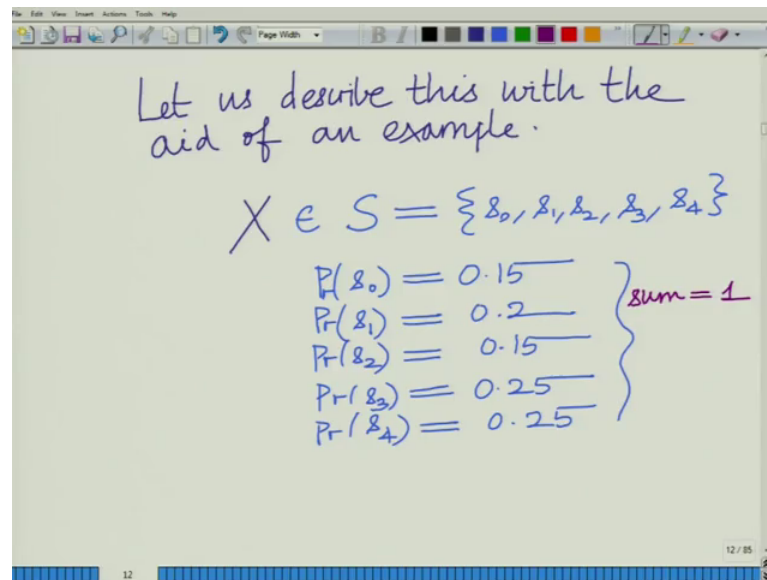 File Edit View Insert Actions Tools Help
Page Width
B I
Let us describe this with the
aid of an example.
X ∈ S = {s₀, s₁, s₂, s₃, s₄}
Pr(s₀) = 0.15
sum = 1
Pr(s₁) = 0.2
Pr(s₂) = 0.15
Pr(s₃) = 0.25
Pr(s₄) = 0.25
12 / 85
12